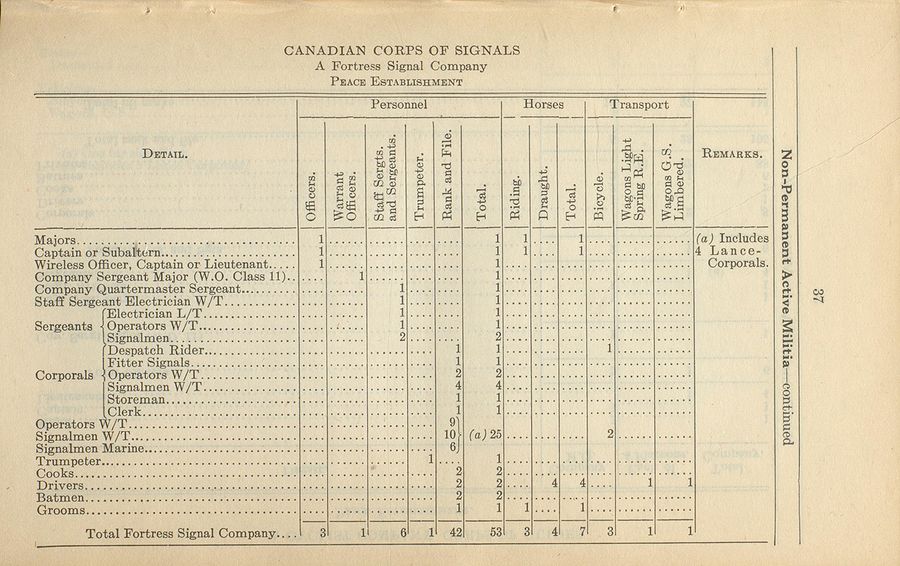 CANADIAN CORPS OF SIGNALS
A Fortress Signal Company
Peace Establishment
Personnel Horses Transport
Detail. Officers. Warrant Officers. Staff Sergts. and Sergeants. Trumpeter. Rank and File. Total. Riding. Draught. Total. Bicycle. Wagons Light Spring R.E. Wagons G.S. Limbered. Remarks.
Majors 1 1 1 1 (a) Includes
Captain or Subaltern 1 1 1 1 4 Lance-
Wireless Officer, Captain or Lieutenant 1 1 Corporals.
Company Sergeant Major (W.O. Class 11) 1 1
Company Quartermaster Sergeant 1 1
Staff Sergeant Electrician W/T 1 1
Electrician L/T 1 1
Sergeants Operators W/T 1 1
Signalmen 2 2
Despatch Rider 1 1 1
Fitter Signals 1 1
Corporals Operators W/T 2 2
Signalmen W/T 4 4
Storeman 1 1
Clerk 1 1
Operators W/T 9
Signalmen W/T 10 (a) 25 2
Signalmen Marine 6
Trumpeter 1 1
Cooks 2 2
Drivers 2 2 4 4 1 1
Batmen 2 2
Grooms 1 1 1 1
Total Fortress Signal Company 3 1 6 1 42 53 3 4 7 3 1 1
Non-Permanent Active Militia—continued
37